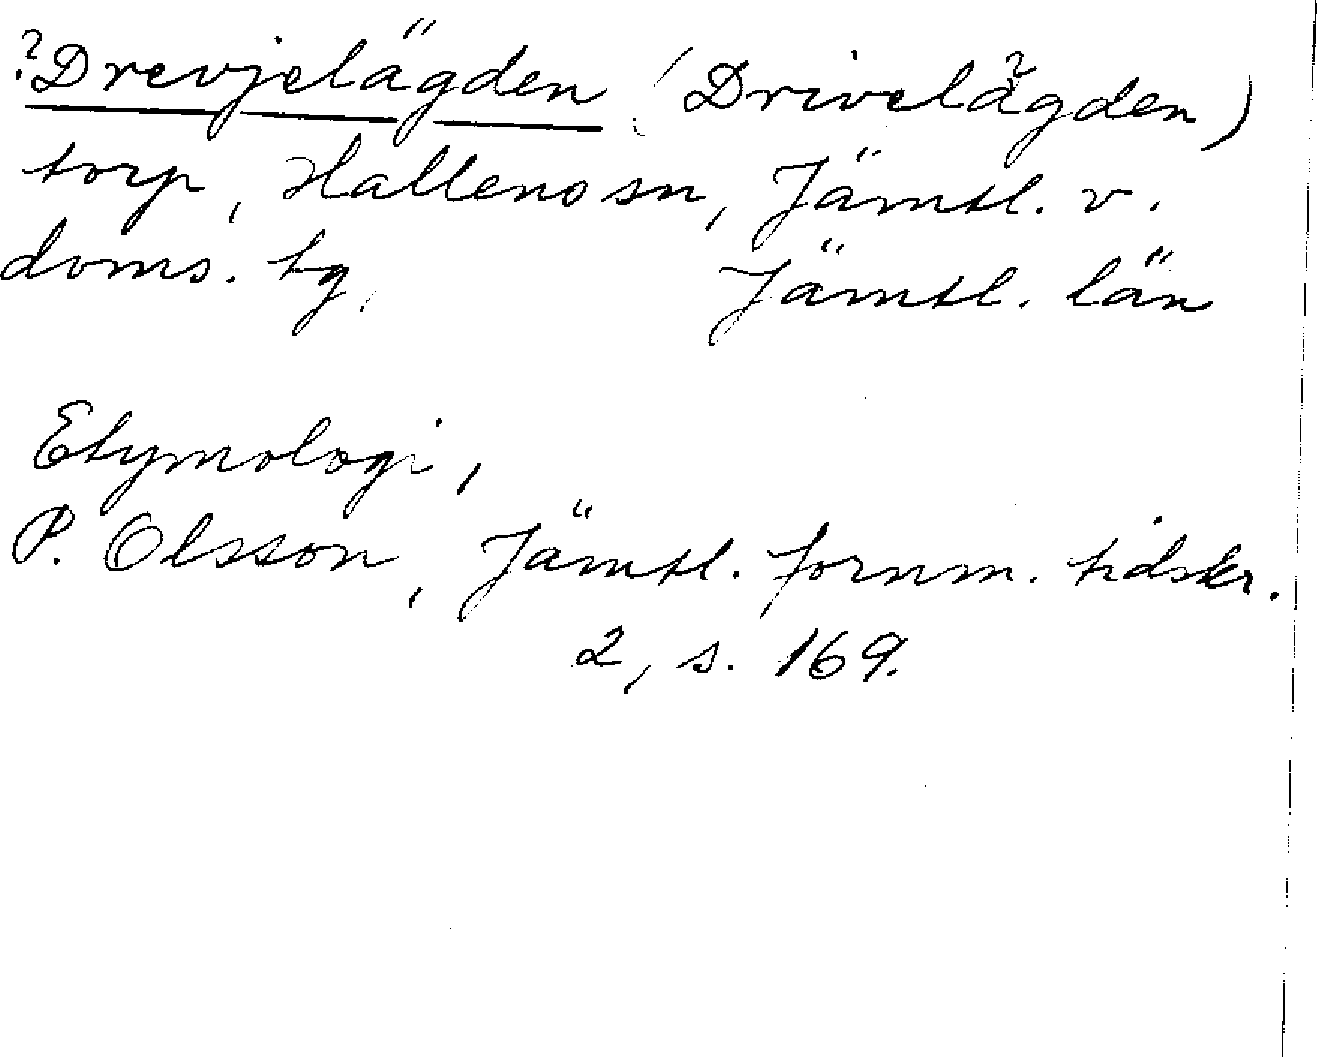 ?Drevjelägden (Drivelägden)
torp, Hallens sn, Jämtl. v.
doms. tg, Jämtl. län
Etymologi,
P. Olsson, Jämtl. fornm. tidskr.
2, s. 169.